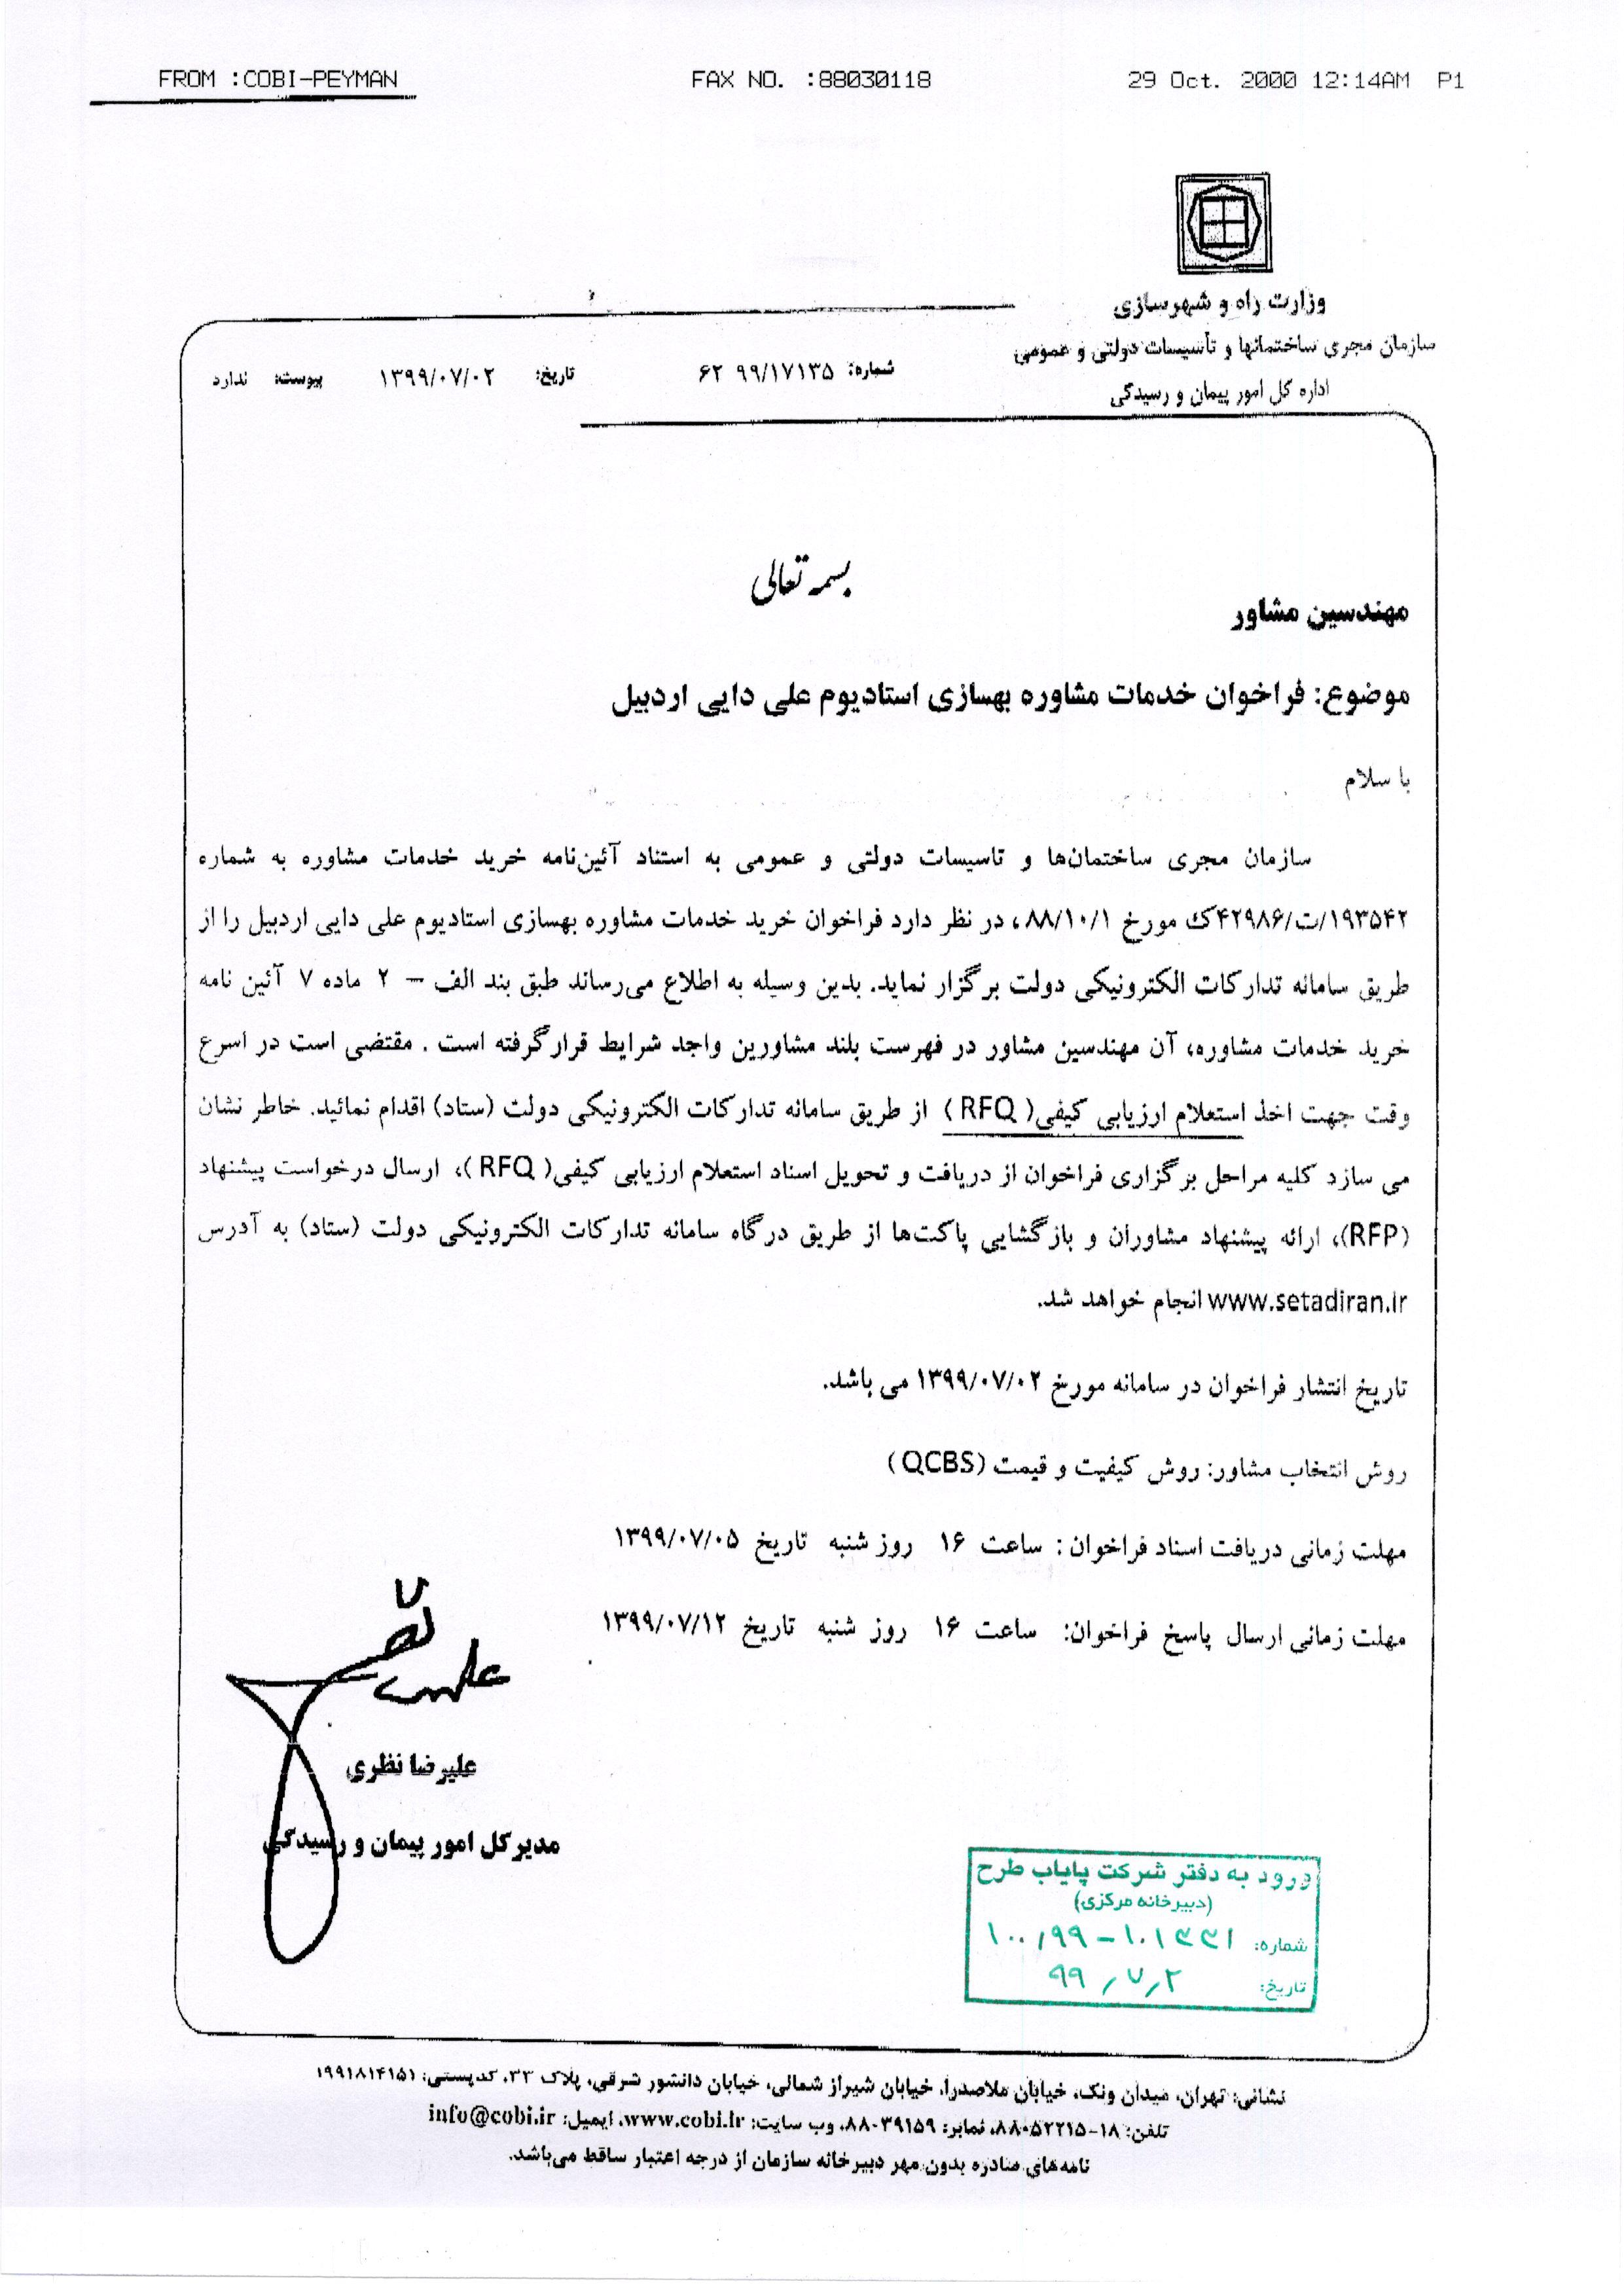 FROM :COBI-PEYMAN FAX NO. :88030118 29 Oct. 2000 12:14AM P1
وزارت راه و شهرسازی
سازمان مجری ساختمانها و تأسیسات دولتی و عمومی
اداره کل امور پیمان و رسیدگی
شماره: ۹۹/۱۷۱۳۵ ۶۲ تاریخ: ۱۳۹۹/۰۷/۰۲ پیوست: ندارد
بسمه تعالی
مهندسین مشاور
موضوع: فراخوان خدمات مشاوره بهسازی استادیوم علی دایی اردبیل
با سلام
سازمان مجری ساختمان‌ها و تاسیسات دولتی و عمومی به استناد آئین‌نامه خرید خدمات مشاوره به شماره
۱۹۳۵۴۲/ت/۴۲۹۸۶ک مورخ ۸۸/۱۰/۱، در نظر دارد فراخوان خرید خدمات مشاوره بهسازی استادیوم علی دایی اردبیل را از
طریق سامانه تدارکات الکترونیکی دولت برگزار نماید. بدین وسیله به اطلاع می‌رساند طبق بند الف – ۲ ماده ۷ آئین نامه
خرید خدمات مشاوره، آن مهندسین مشاور در فهرست بلند مشاورین واجد شرایط قرارگرفته است . مقتضی است در اسرع
وقت جهت اخذ استعلام ارزیابی کیفی( RFQ ) از طریق سامانه تدارکات الکترونیکی دولت (ستاد) اقدام نمائید. خاطر نشان
می سازد کلیه مراحل برگزاری فراخوان از دریافت و تحویل اسناد استعلام ارزیابی کیفی( RFQ )، ارسال درخواست پیشنهاد
(RFP)، ارائه پیشنهاد مشاوران و بازگشایی پاکت‌ها از طریق درگاه سامانه تدارکات الکترونیکی دولت (ستاد) به آدرس
www.setadiran.ir انجام خواهد شد.
تاریخ انتشار فراخوان در سامانه مورخ ۱۳۹۹/۰۷/۰۲ می باشد.
روش انتخاب مشاور: روش کیفیت و قیمت (QCBS )
مهلت زمانی دریافت اسناد فراخوان : ساعت ۱۶ روز شنبه تاریخ ۱۳۹۹/۰۷/۰۵
مهلت زمانی ارسال پاسخ فراخوان: ساعت ۱۶ روز شنبه تاریخ ۱۳۹۹/۰۷/۱۲
علیرضا نظری
مدیرکل امور پیمان و رسیدگی
ورود به دفتر شرکت پایاب طرح
(دبیرخانه مرکزی)
شماره: ۱۰۰/۹۹-۱۰۱۳۳۱
تاریخ: ۹۹/۷/۲
نشانی: تهران، میدان ونک، خیابان ملاصدرا، خیابان شیراز شمالی، خیابان دانشور شرقی، پلاک ۳۳، کدپستی: ۱۹۹۱۸۱۴۱۵۱
تلفن: ۱۸-۸۸۰۵۲۲۱۵، نمابر: ۸۸۰۳۹۱۵۹، وب سایت: www.cobi.ir، ایمیل: info@cobi.ir
نامه‌های صادره بدون مهر دبیرخانه سازمان از درجه اعتبار ساقط می‌باشد.